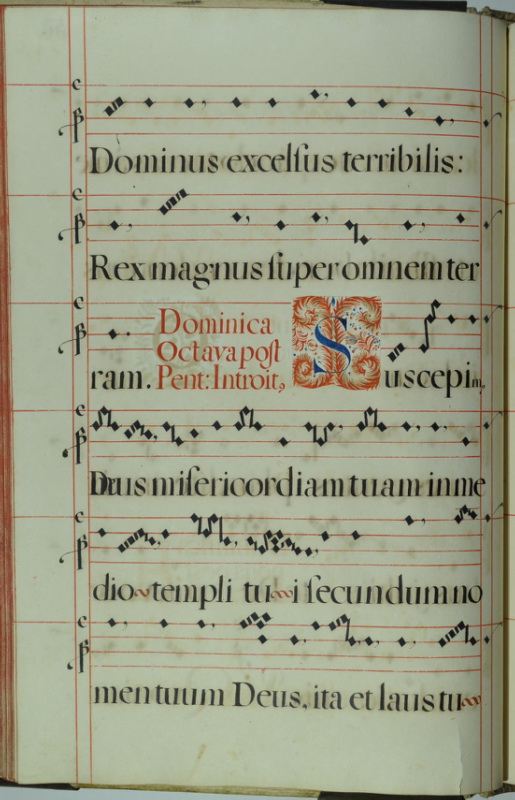 Dominus excelſus terribilis:
Rex magnus ſuper omnem ter
ram. Dominica
Octava poſt
Pent: Introit,
Suscepim,
Deus miſericordiam tuam in me
dio templi tui ſecundum no
men tuum Deus, ita et laus tu